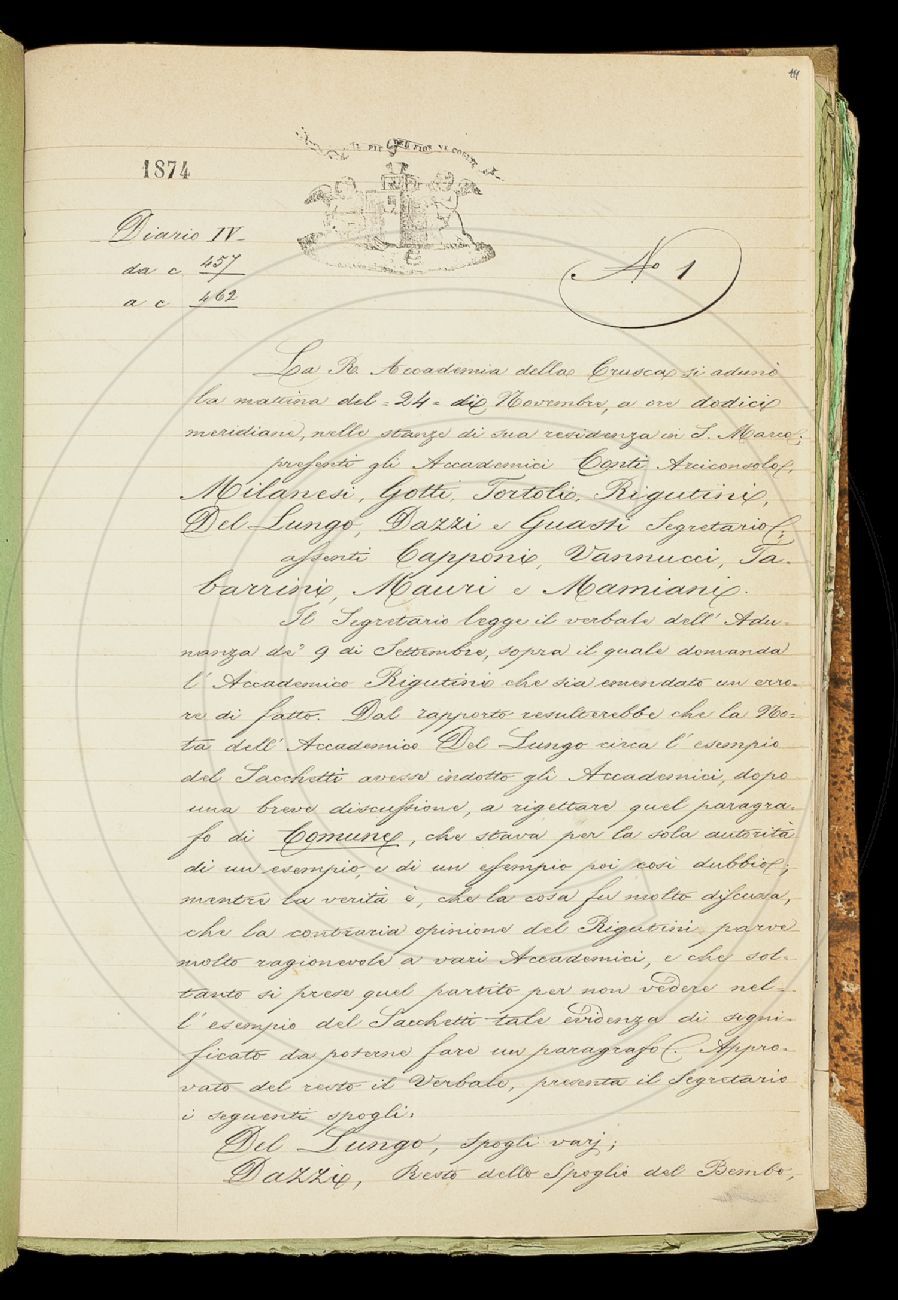 1874
Diario IV
da c 457
a c 462
IL PIÙ BEL FIOR NE COGLIE
No 1
La R. Accademia della Crusca si adunò
la mattina del = 24 = di Novembre, a ore dodici
meridiane, nelle stanze di sua residenza in S. Marco;
presenti gli Accademici Conti Arciconsolo,
Milanesi, Gotti, Tortoli, Rigutini,
Del Lungo, Dazzi e Guasti Segretario;
assenti Capponi, Vannucci, Ta-
barrini, Mauri e Mamiani.
Il Segretario legge il verbale dell' Adu-
nanza de' 9 di Settembre, sopra il quale domanda
l' Accademico Rigutini che sia emendato un erro-
re di fatto. Dal rapporto resulterebbe che la No-
ta dell' Accademico Del Lungo circa l' esempio
del Sacchetti avesse indotto gli Accademici, dopo
una breve discussione, a rigettare quel paragra-
fo di Comune, che stava per la sola autorità
di un esempio, e di un esempio poi così dubbio;
mentre la verità è, che la cosa fu molto discussa,
che la contraria opinione del Rigutini parve
molto ragionevole a vari Accademici, e che sol-
tanto si prese quel partito per non vedere nel-
l' esempio del Sacchetti tale evidenza di signi-
ficato da poterne fare un paragrafo. Appro-
vato del resto il Verbale, presenta il Segretario
i seguenti spogli:
Del Lungo, Spogli varj;
Dazzi, Resto dello Spoglio del Bembo,